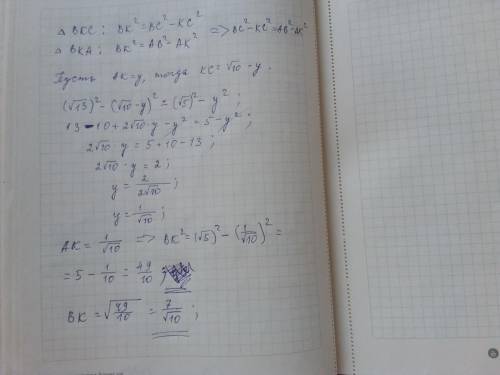 △ BKC: BK² = BC² - KC²
△ BKA: BK² = AB² - AK² => BC² - KC² = AB² - AK²
Пусть AK = y, тогда KC = √10 - y.
(√13)² - (√10 - y)² = (√5)² - y² ;
13 - 10 + 2√10 · y - y² = 5 - y² ;
2√10 · y = 5 + 10 - 13 ;
2√10 · y = 2 ;
y = 2/(2√10) ;
y = 1/√10 ;
AK = 1/√10 => BK² = (√5)² - (1/√10)² =
= 5 - 1/10 = 49/10 ;
BK = √(49/10) = 7/√10 ;